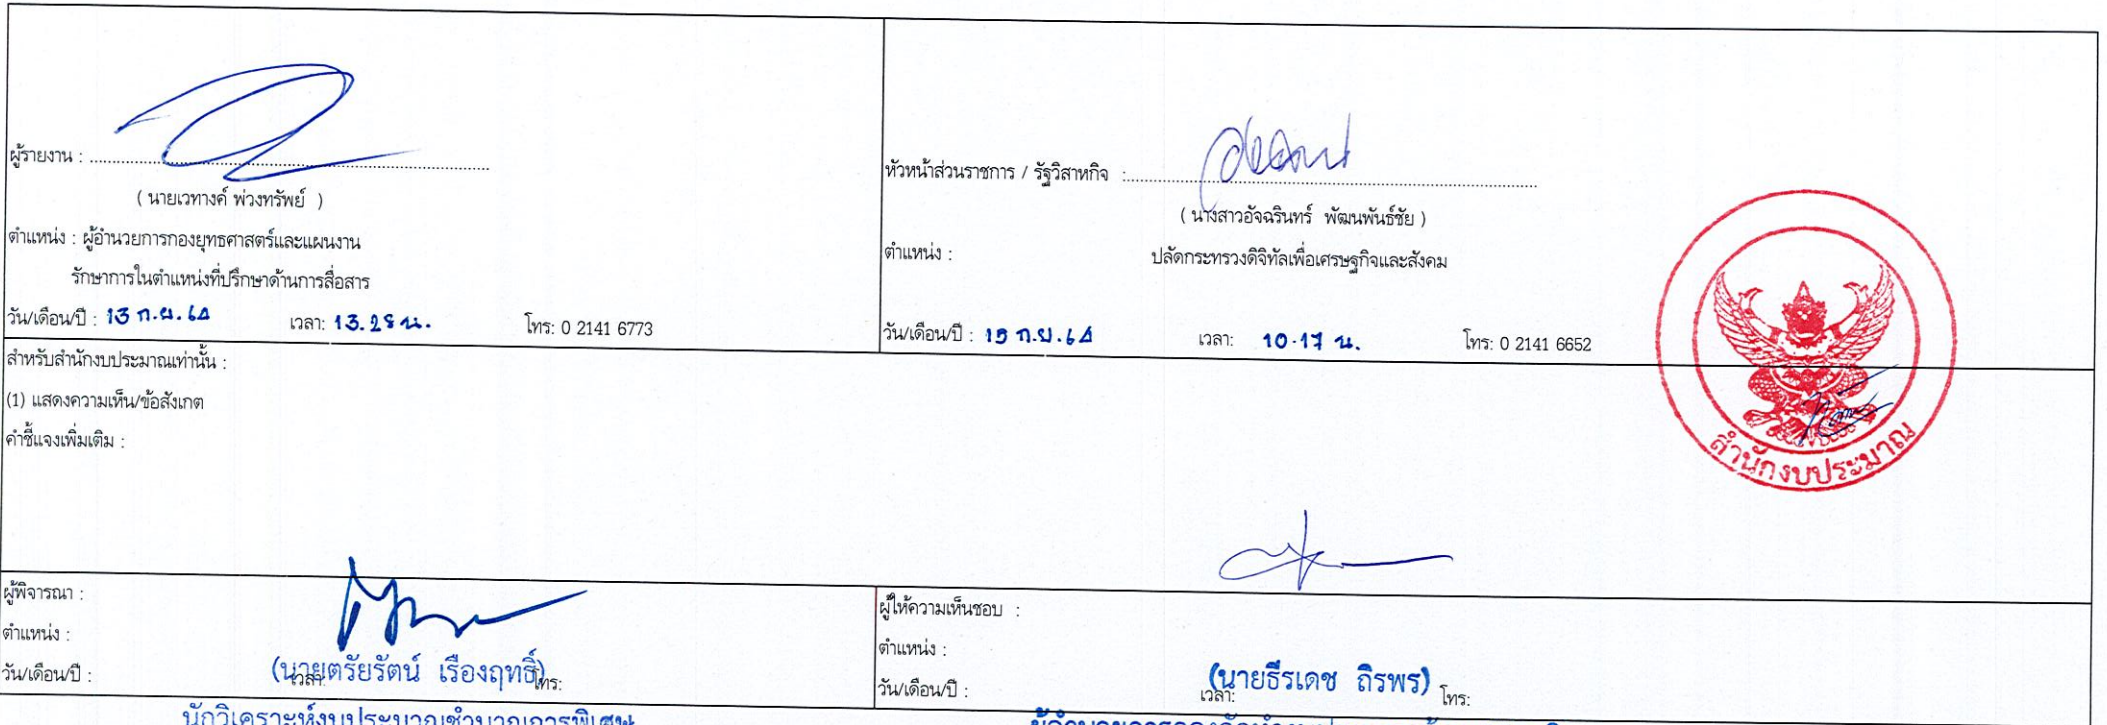 ผู้รายงาน :
( นายเวทางค์ พ่วงทรัพย์ )
ตำแหน่ง : ผู้อำนวยการกองยุทธศาสตร์และแผนงาน
รักษาการในตำแหน่งที่ปรึกษาด้านการสื่อสาร
วัน/เดือน/ปี : 13 ก.ย. 64 เวลา: 13.28 น. โทร: 0 2141 6773
หัวหน้าส่วนราชการ / รัฐวิสาหกิจ :
( นางสาวอัจฉรินทร์ พัฒนพันธ์ชัย )
ตำแหน่ง : ปลัดกระทรวงดิจิทัลเพื่อเศรษฐกิจและสังคม
วัน/เดือน/ปี : ก.ย. 64 เวลา: 10.17 น. โทร: 0 2141 6652
สำหรับสำนักงบประมาณเท่านั้น :
(1) แสดงความเห็น/ข้อสังเกต
คำชี้แจงเพิ่มเติม :
สำนักงบประมาณ
ผู้พิจารณา :
ตำแหน่ง :
(นายตรัยรัตน์ เรืองฤทธิ์)
วัน/เดือน/ปี : เวลา: โทร:
นักวิเคราะห์งบประมาณชำนาญการพิเศษ
ผู้ให้ความเห็นชอบ :
ตำแหน่ง :
(นายธีรเดช ถิรพร)
วัน/เดือน/ปี : เวลา: โทร: